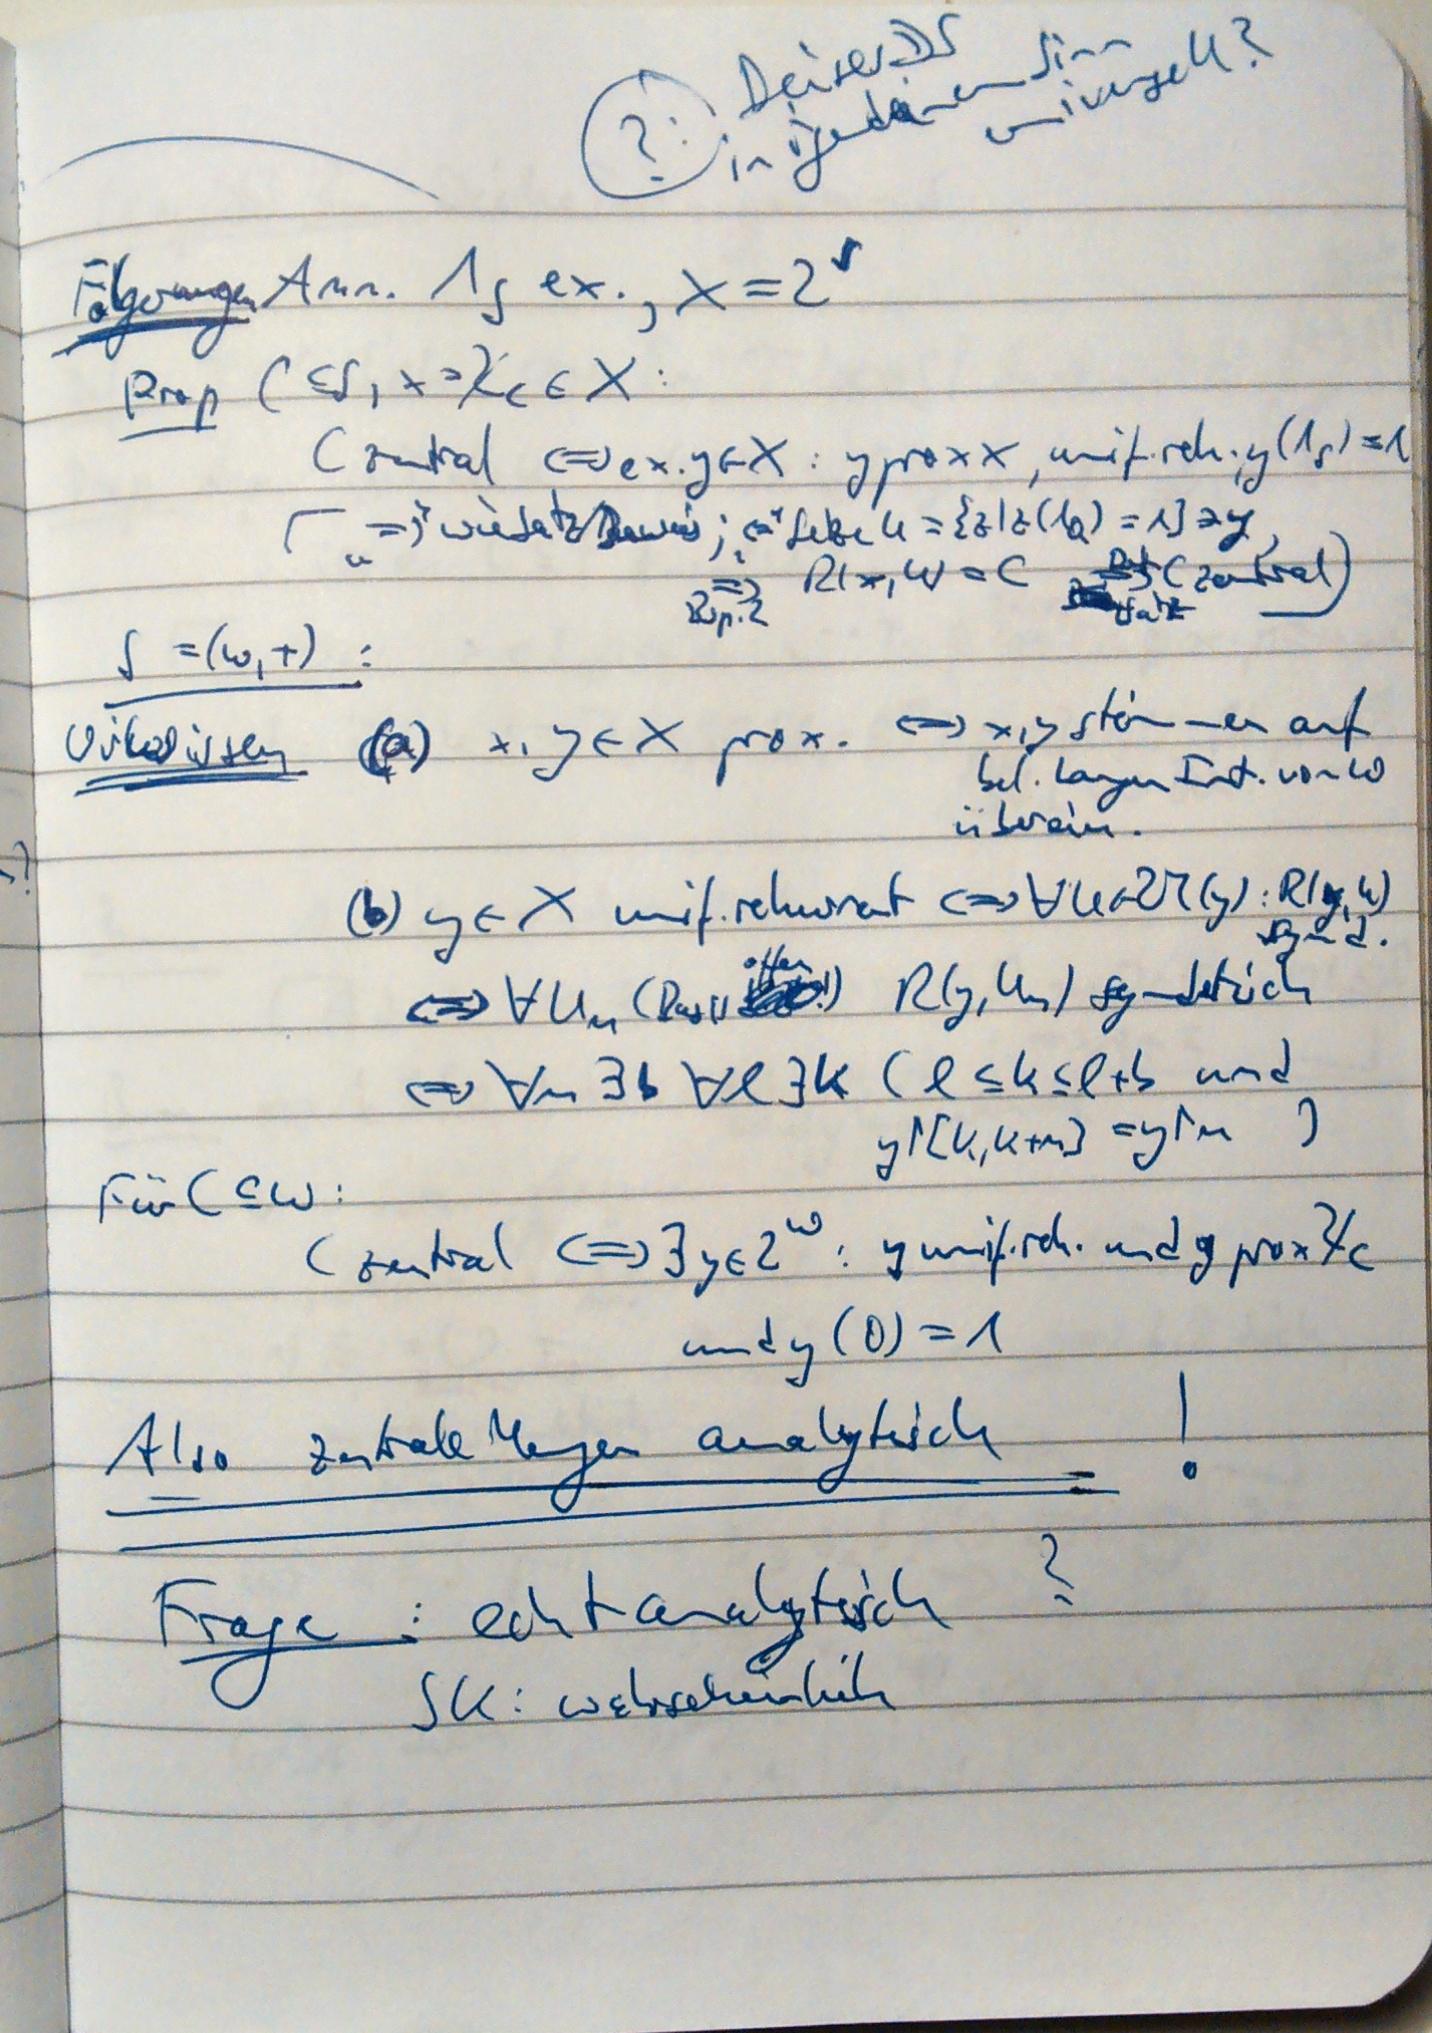 ?:
in irgendeinem Sinn
universell?
Folgerungen Ann. 1_S ex., X = 2^S
Prop C ⊆ S, x = χ_C ∈ X:
C zentral ⟺ ex. y ∈ X: y prox x, unif. rek., y(1_S) = 1
"⇒" wie Satz/Beweis; "⇐" Setze U = {z | z(1_S) = 1} ∋ y,
⇒ R(x, U) = C ⇒ C zentral)
Prop. 2 Satz
S = (ω, +):
Wir wissen (a) x, y ∈ X prox. ⟺ x, y stimmen auf
bel. langen Int. von ω
überein.
(b) y ∈ X unif. rekurrent ⟺ ∀U ∈ 𝔘(y): R(y, U)
synd.
⟺ ∀U_n (Basis offen) R(y, U_n) syndetisch
⟺ ∀n ∃b ∀ℓ ∃k (ℓ ≤ k ≤ ℓ+b und
y↾[k, k+n) = y↾n )
Für C ⊆ ω:
C zentral ⟺ ∃y ∈ 2^ω: y unif. rek. und y prox χ_C
und y(0) = 1
Also zentrale Mengen analytisch !
Frage: echt analytisch ?
SK: wahrscheinlich